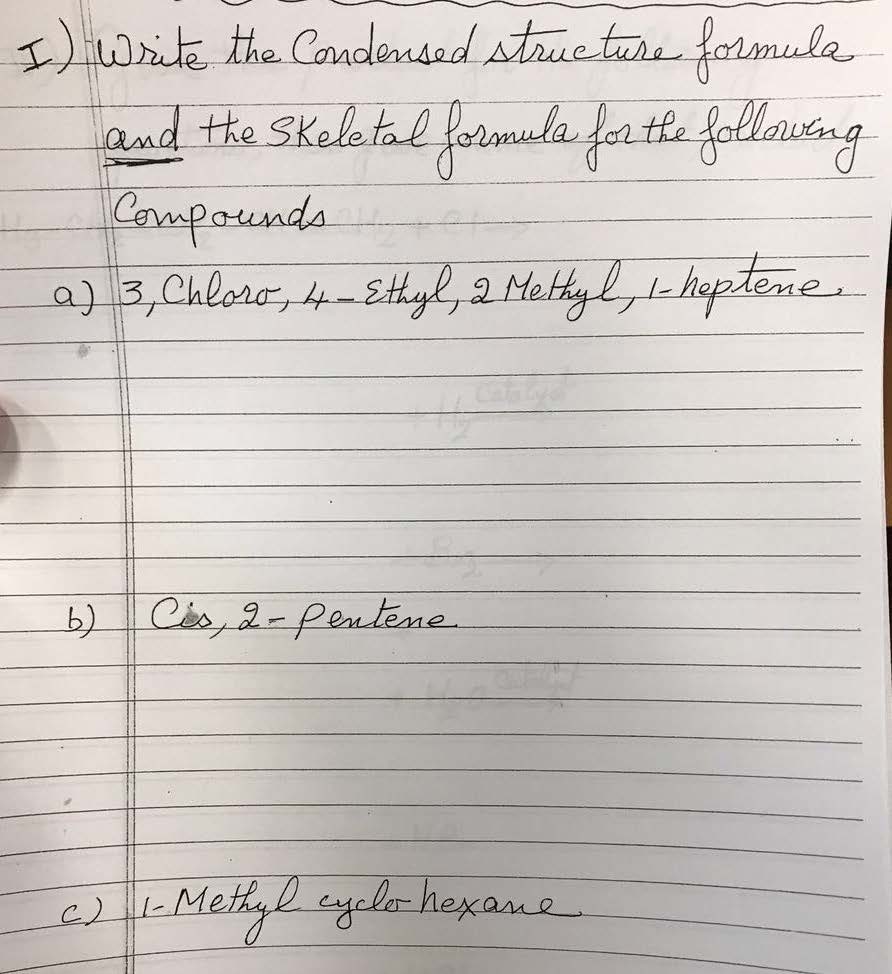 I) Write the Condensed structure formula
and the Skeletal formula for the following
Compounds
a) 3, Chloro, 4-Ethyl, 2 Methyl, 1-heptene.
+ H2 Catalyst
Br2
b) Cis, 2-Pentene
+ H2O Catalyst
c) 1-Methyl cyclo hexane